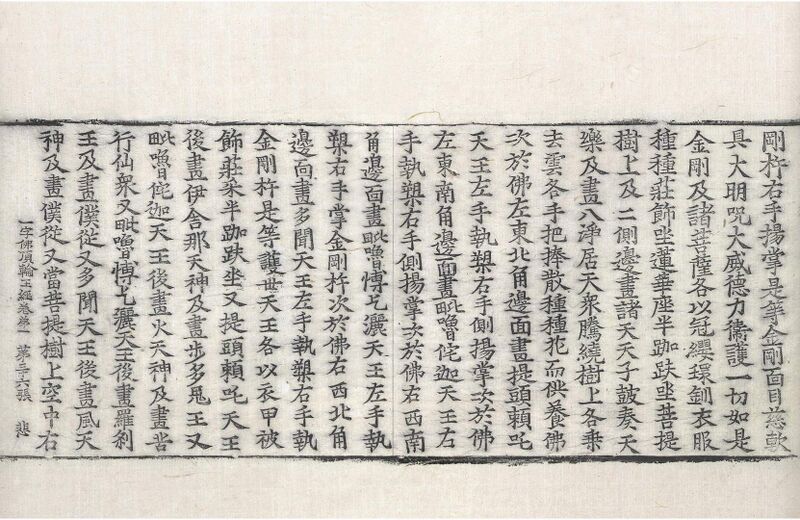 剛杵右手揚掌是等金剛面目慈軟
具大明呪大威德力擁護一切如是
金剛及諸菩薩各以冠纓環釧衣服
種種莊飾坐蓮華座半跏趺坐菩提
樹上及二側邊畫諸天子鼓奏天
樂及畫八淨居天衆騰繞樹上各乗
去雲各手把捧散種種花而供養佛
次於佛左東北角邊面畫提頭頼吒
天王左手執槊右手側揚掌次於佛
左東南角邊面畫毗嚕侘迦天王右
手執槊右手側揚掌次於佛右西南
角邊面畫毗嚕博乞灑天王左手執
槊右手掌金剛杵次於佛右西北角
邊面畫多聞天王左手執槊右手執
金剛杵是等護世天王各以衣甲被
飾莊采半跏趺坐又提頭頼吒天王
後畫伊舍那天神及畫步多鬼王又
毗嚕侘迦天王後畫火天神及畫苦
行仙衆又毗嚕博乞灑天王後畫羅刹
王及畫僕從又多聞天王後畫風天
神及畫僕從又當菩提樹上空中右
一字佛頂輪王經卷第一 第三十六張 悲